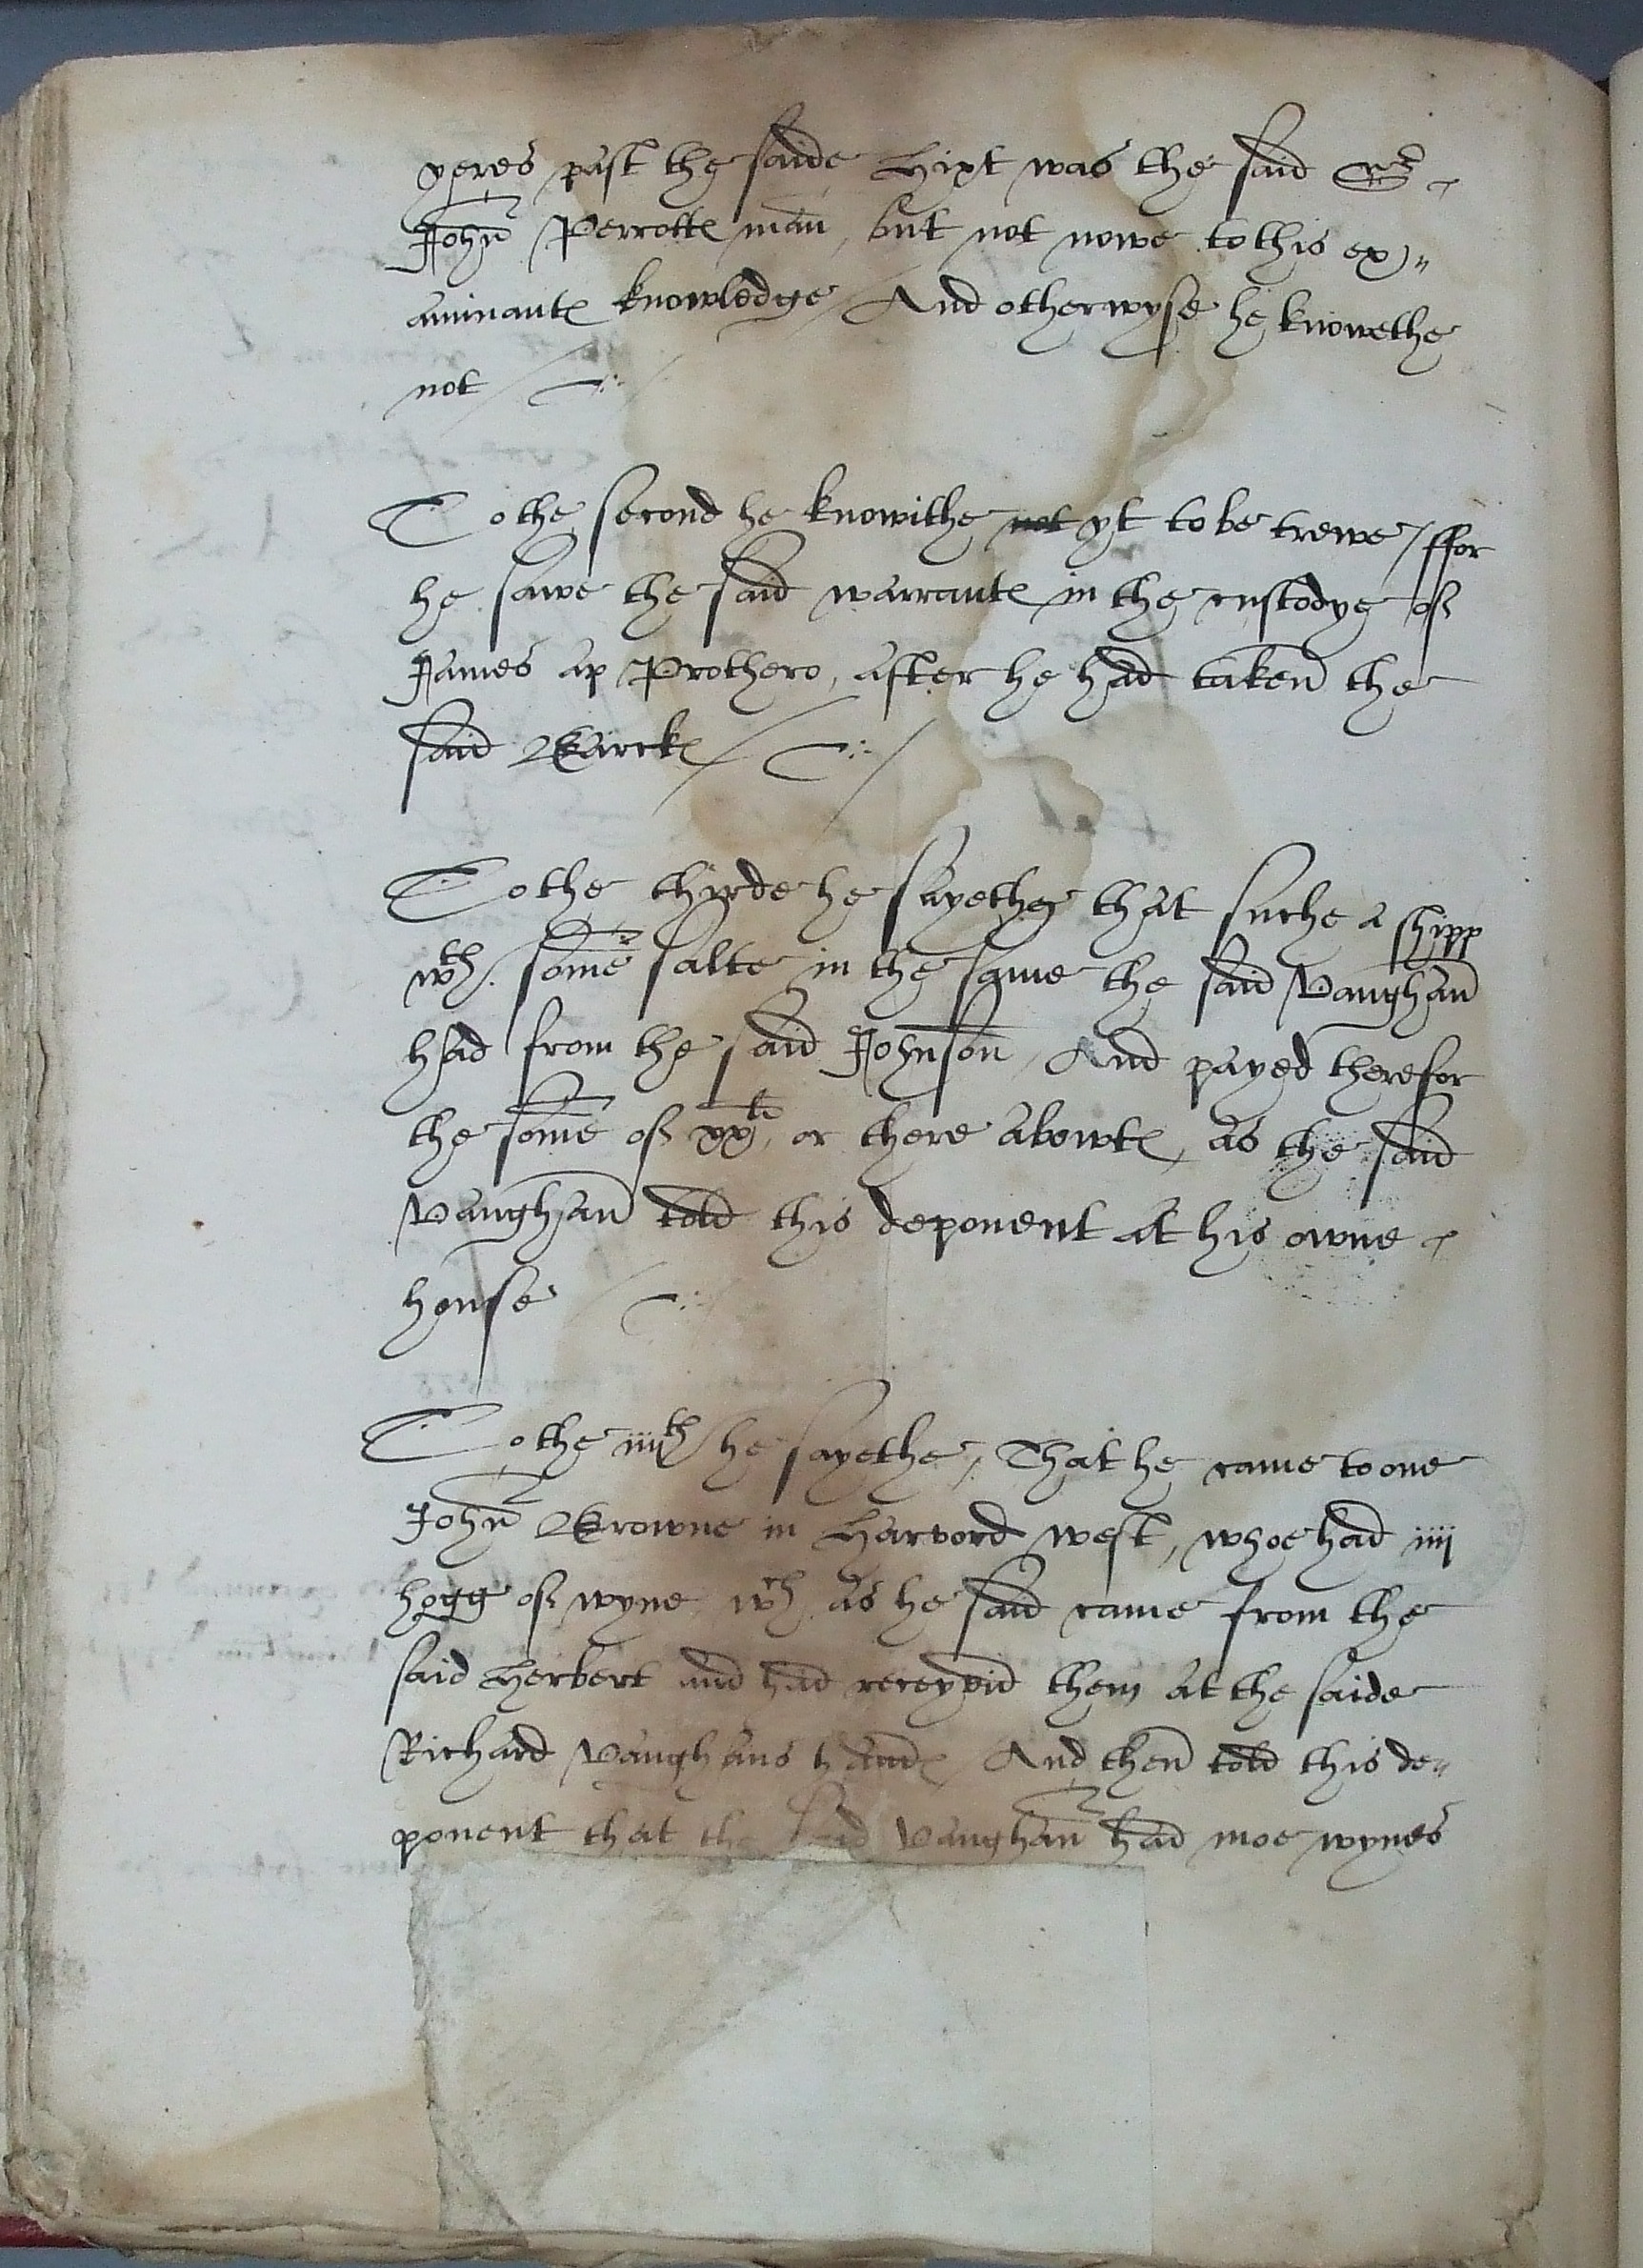 yeres past the saide Hixt was the said Sr
John Perrotts man, but not nowe to this ex=
aminants knowledge / And otherwyse he knowethe
not /
To the second he knowithe not yt to be trewe / ffor
he sawe the said warrants in the custodye of
James ap Prothero, after he had taken the
said Barcks /
To the thirde he sayethe that suche a shipp
wth some salte in the same the said Vaughan
had from the said Johnson, And payed therefor
the some of xxli, or there abowts, as the said
Vaughan told this deponent at his owne
house
To the iiijth he sayethe, That he came to one
John Browne in Harvord west, whoe had iiij
hogg of wyne wch as he said came from the
said Herbert and had receyvid them at the saide
Richard Vaughans hands / And then told this de=
ponent that the said Vaughan had moe wynes